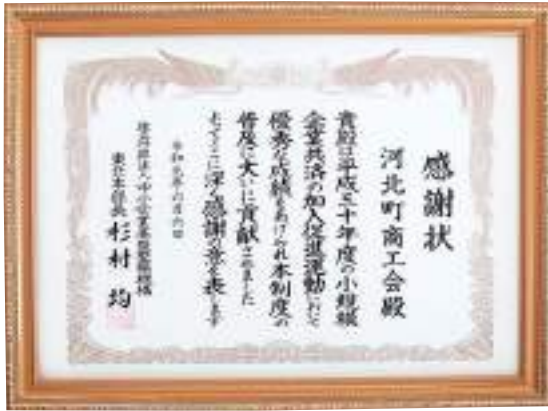 感謝状
河北町商工会殿
貴殿は平成三十年度の小規模
企業共済の加入促進運動において
優秀な成績をあげられ本制度の
普及に大いに貢献されました
よってここに深く感謝の意を表します
令和元年六月六日
独立行政法人中小企業基盤整備機構
東北本部長 杉村均